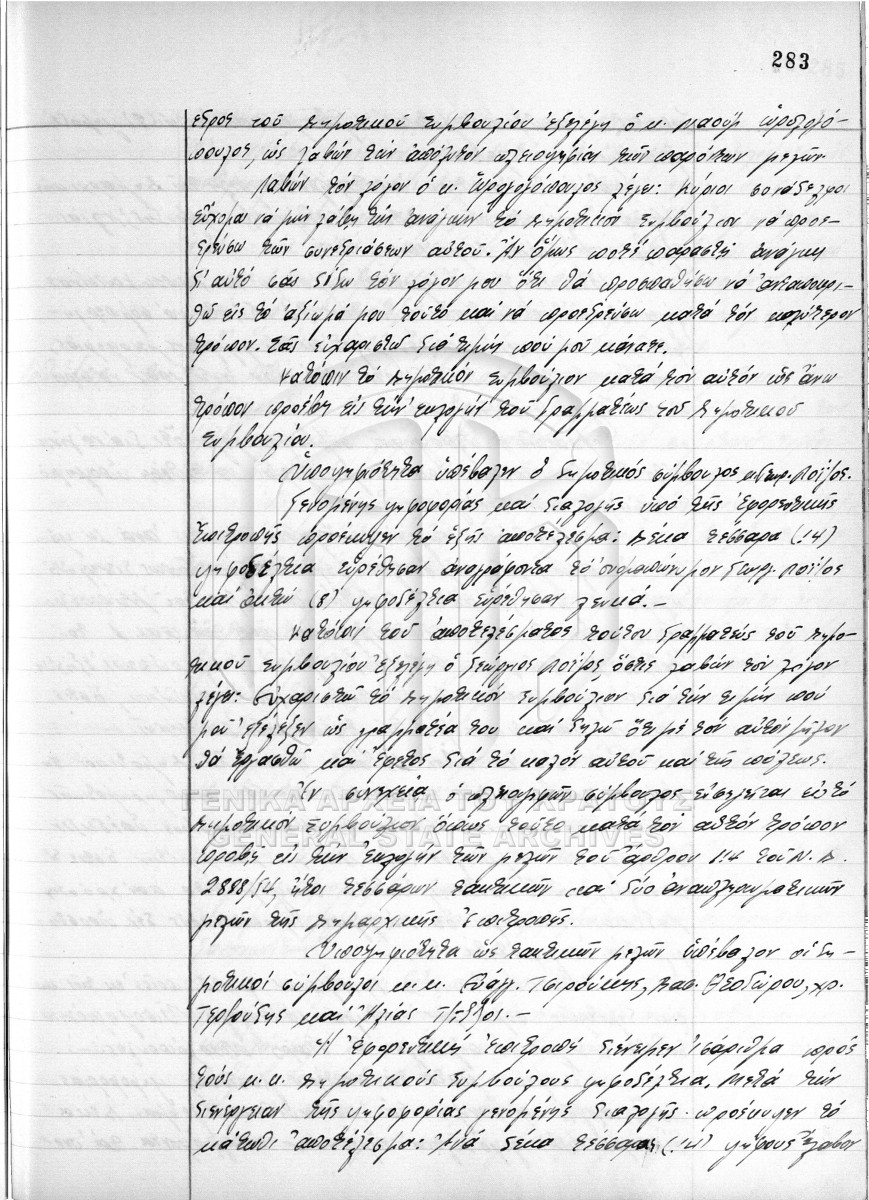 283
εδρος τοῦ Δημοτικοῦ Συμβουλίου ἐξελέγη ὁ κ. Ναούμ Ὡρολογό-
πουλος, ὡς λαβών τήν ἀπόλυτον πλειοψηφίαν τῶν παρόντων μελῶν.
Λαβών τόν λόγον ὁ κ. Ὡρολογόπουλος λέγει: Κύριοι συνάδελφοι
εὔχομαι νά μήν λάβῃ τήν ἀνάγκην τό Δημοτικόν Συμβούλιον νά προε-
δρεύσω τῶν συνεδριάσεων αὐτοῦ. Ἄν ὅμως ποτέ παραστῇ ἀνάγκη
δι' αὐτό σᾶς δίδω τόν λόγον μου ὅτι θά προσπαθήσω νά ἀνταποκρι-
θῶ εἰς τό ἀξίωμά μου τοῦτο καί νά προεδρεύσω κατά τόν καλύτερον
τρόπον. Σᾶς εὐχαριστῶ διά τιμήν πού μοῦ κάνατε.
Κατόπιν τό Δημοτικόν Συμβούλιον κατά τόν αὐτόν ὡς ἄνω
τρόπον προέβη εἰς τήν ἐκλογήν τοῦ Γραμματέως τοῦ Δημοτικοῦ
Συμβουλίου.
Ὑποψηφιότητα ὑπέβαλεν ὁ δημοτικός σύμβουλος κ. Γεωρ. Λοΐζος.
Γενομένης ψηφοφορίας καί διαλογῆς ὑπό τῆς Ἐφορευτικῆς
Ἐπιτροπῆς προέκυψεν τό ἑξῆς ἀποτέλεσμα: Δέκα τέσσαρα (14)
ψηφοδέλτια εὑρέθησαν ἀναγράφοντα τό ὀνοματεπώνυμον Γεωργ. Λοΐζος
καί ὀκτώ (8) ψηφοδέλτια εὑρέθησαν λευκά. —
Κατόπιν τοῦ ἀποτελέσματος τούτου Γραμματεύς τοῦ Δημο-
τικοῦ Συμβουλίου ἐξελέγη ὁ Γεώργιος Λοΐζος, ὅστις λαβών τόν λόγον
λέγει: Εὐχαριστῶ τό Δημοτικόν Συμβούλιον διά τήν τιμήν πού
μοῦ ἐξέλεξεν ὡς γραμματέα του καί δηλῶ ὅτι μέ τόν αὐτόν ζῆλον
θά ἐργασθῶ καί ἐφέτος διά τό καλόν αὐτοῦ καί τῆς πόλεως.
Ἐν συνεχείᾳ ὁ πλειοψηφῶν σύμβουλος εἰσηγεῖται εἰς τό
Δημοτικόν Συμβούλιον ὅπως τοῦτο κατά τόν αὐτόν τρόπον
προβῇ εἰς τήν ἐκλογήν τῶν μελῶν τοῦ ἄρθρου 114 τοῦ Ν. Δ.
2888/54, ἤτοι τεσσάρων τακτικῶν καί δύο ἀναπληρωματικῶν
μελῶν τῆς Δημαρχικῆς Ἐπιτροπῆς.
Ὑποψηφιότητα ὡς τακτικῶν μελῶν ὑπέβαλον οἱ δη-
μοτικοί σύμβουλοι κ.κ. Εὐάγ. Τσιρούκης, Βασ. Θεοδώρου, Χρ.
καί Ἠλίας
Ἡ Ἐφορευτική Ἐπιτροπή διένειμεν ἰσάριθμα πρός
τούς κ.κ. Δημοτικούς Συμβούλους ψηφοδέλτια. Μετά τήν
διενέργειαν τῆς ψηφοφορίας γενομένης διαλογῆς προέκυψεν τό
κάτωθι ἀποτέλεσμα: Ἀνά δέκα τέσσαρας (14) ψήφους ἔλαβον
ΓΕΝΙΚΑ ΑΡΧΕΙΑ ΤΟΥ ΚΡΑΤΟΥΣ
GENERAL STATE ARCHIVES